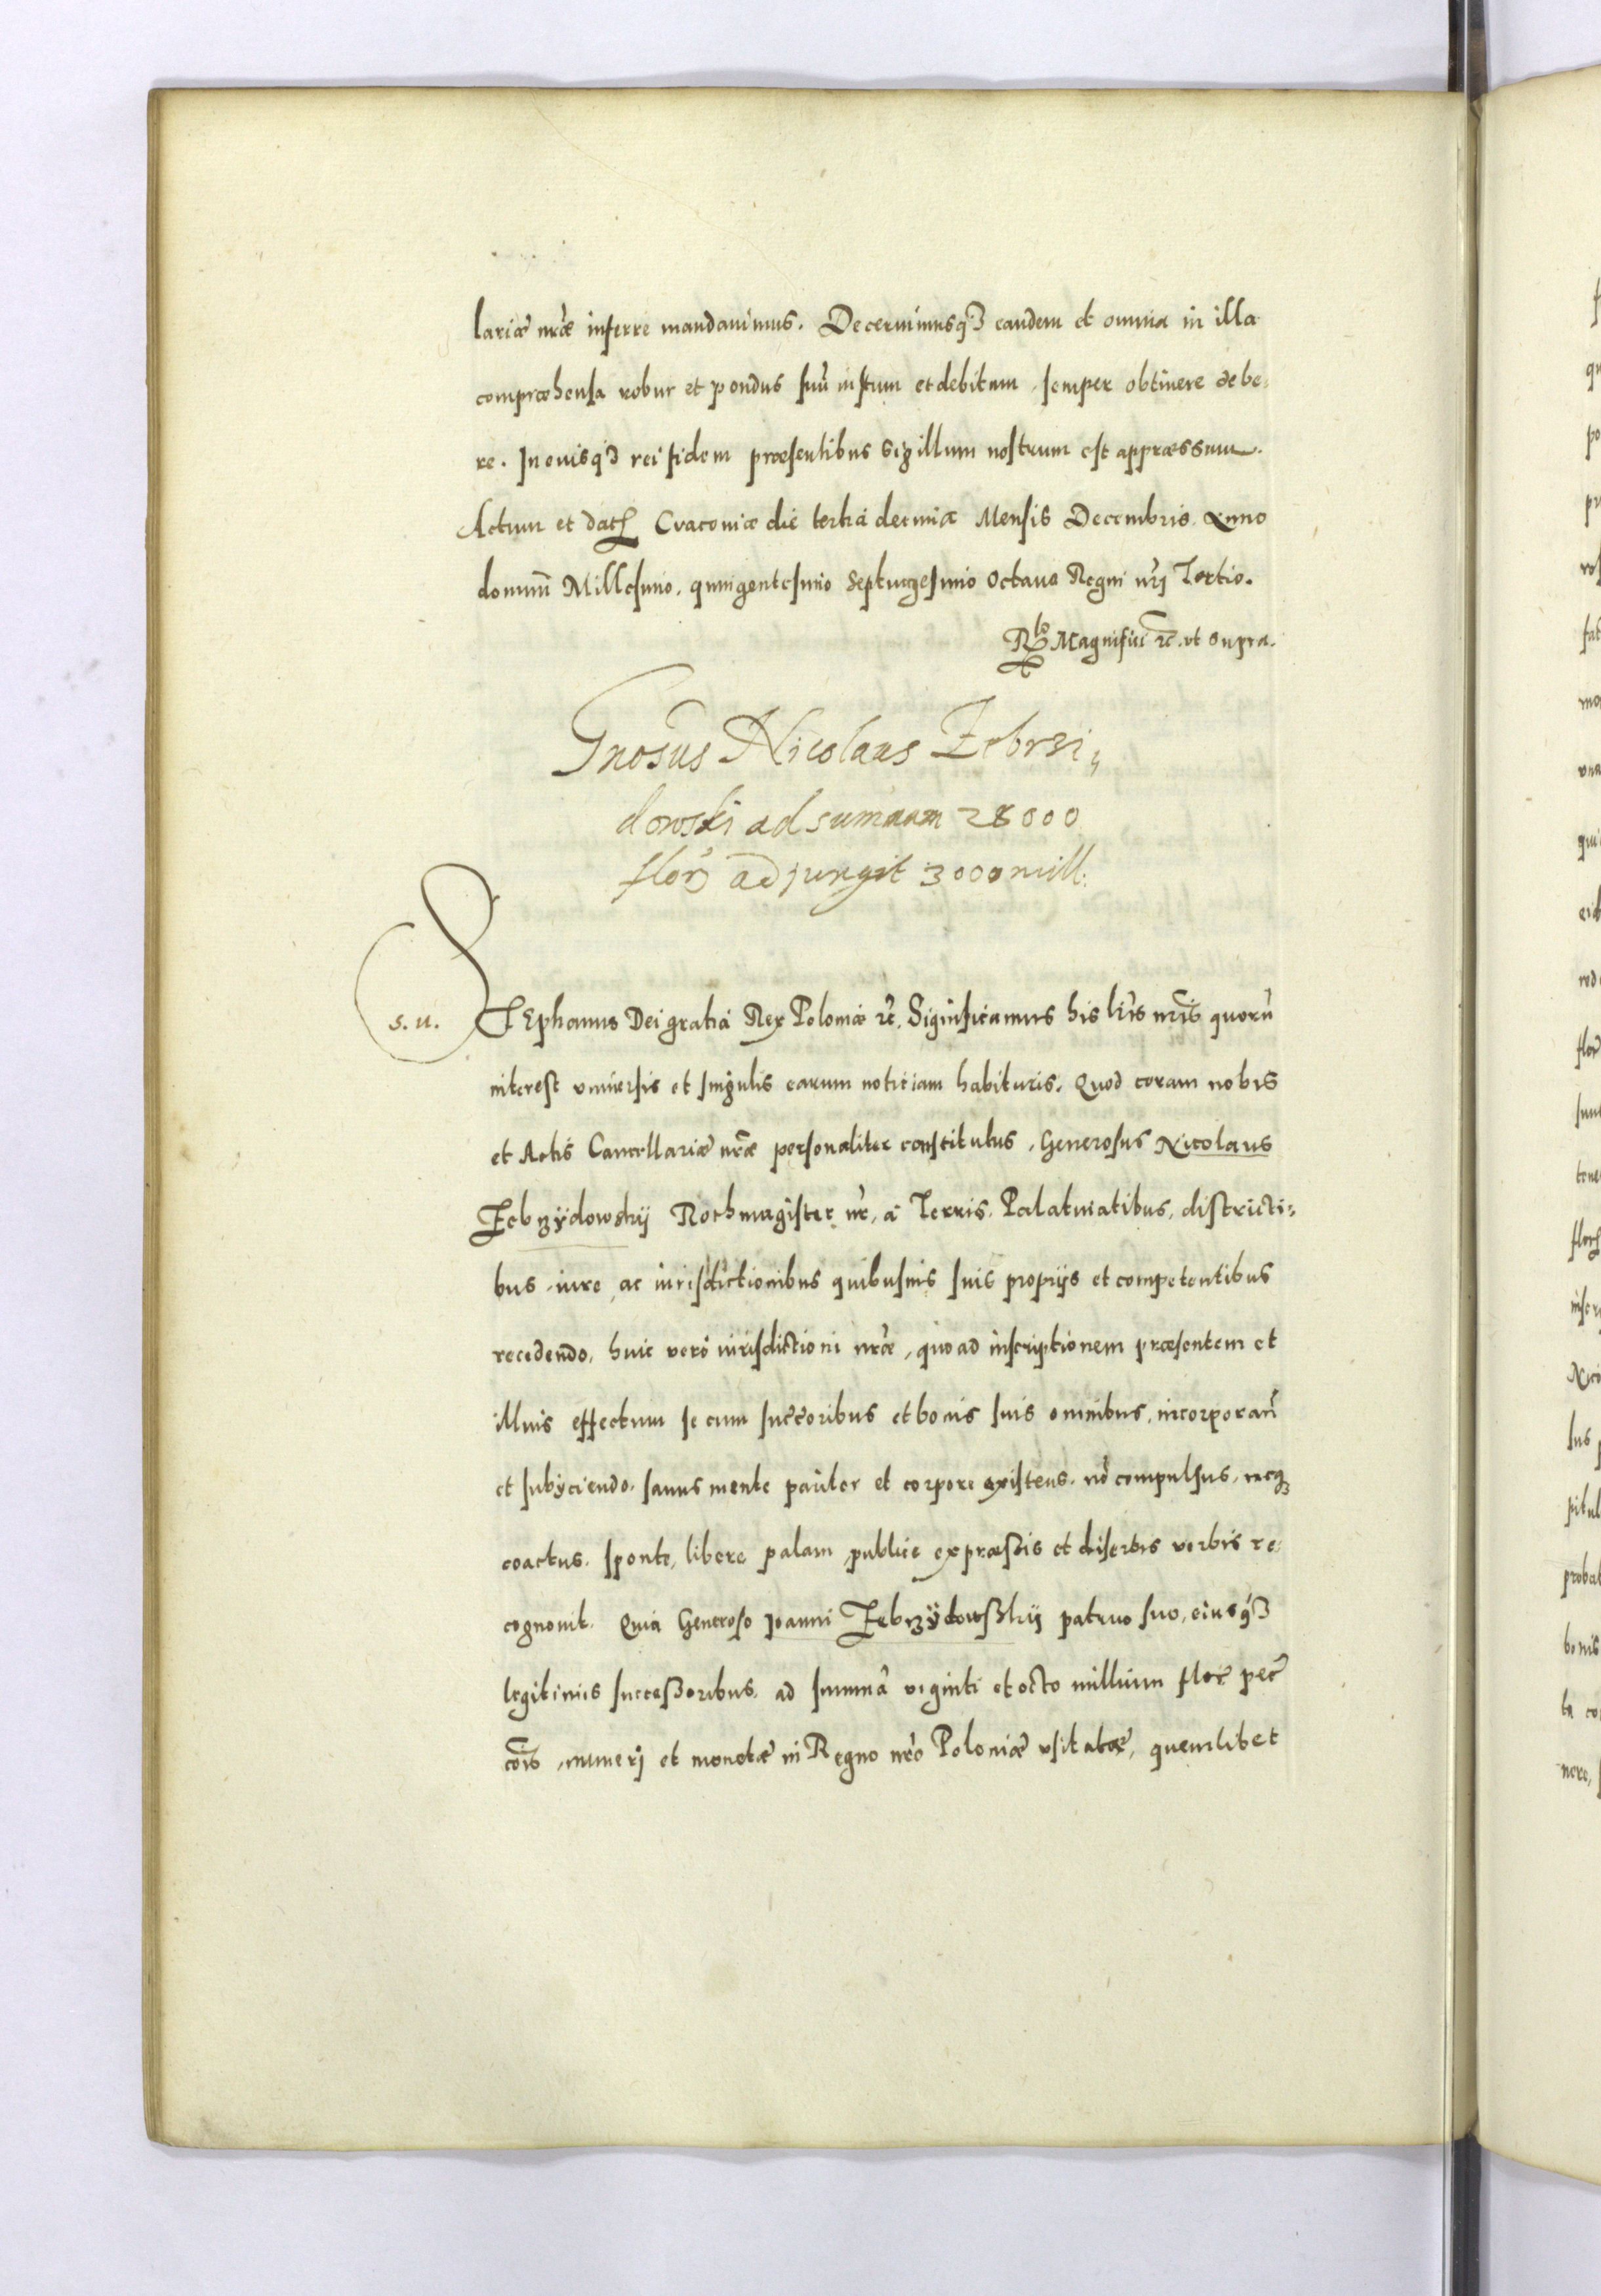 lariæ nr̃æ inferre mandauimus. Decernimusq3 eandem et omnia in illa
compræhensa robur et pondus suũ iustum et debitum, semper obtinere debe:
re. In cuius q3 rei fidem præsentibus sigillum nostrum est appræssum.
Actum et dat̃ Cracouiæ die tertia decima Mensis Decembris. Anno
dominĩ Millesimo, quingentesimo Septuagesimo Octauo Regni nrj̃ Tertio.
Rlo Magnifici &c. vt supra.
Gnosus Nicolaus Zebrzi,,
dowski ad summam 28000
flor̃ adjungit 3000 mill:
s. u. STEphanus Dei gratia Rex Poloniæ &c. Significamus his lr̃is nr̃is quorũ
interest vniuersis et singulis earum noticiam habituris. Quod coram nobis
et Actis Cancellariæ nr̃æ personaliter constitutus, Generosus Nicolaus
Zebrzÿdowskij Rothmagister nr̃, a Terris, Palatinatibus, districti:
bus, iure, ac iurisdictionibus quibusuis suis proprijs et competentibus
recedendo, huic verò iurisdictioni nr̃æ, quo ad inscriptionem præsentem et
illius effectum se cum succoribus et bonis suis omnibus, incorporañ
et subijciendo, sanus mente pariter et corpore existens, nõ compulsus, necq3
coactus, sponte, libere palam, publice expræssis et disertis verbis re:
cognouit. Quia Generoso Joanni Zebrzÿdowskij patruo suo, eiusq3
legitimis successoribus, ad summã viginti et octo millium flor̃ pec̃
cõis, numerj et monetæ in Regno nr̃o Poloniæ vsitatæ, quemlibet